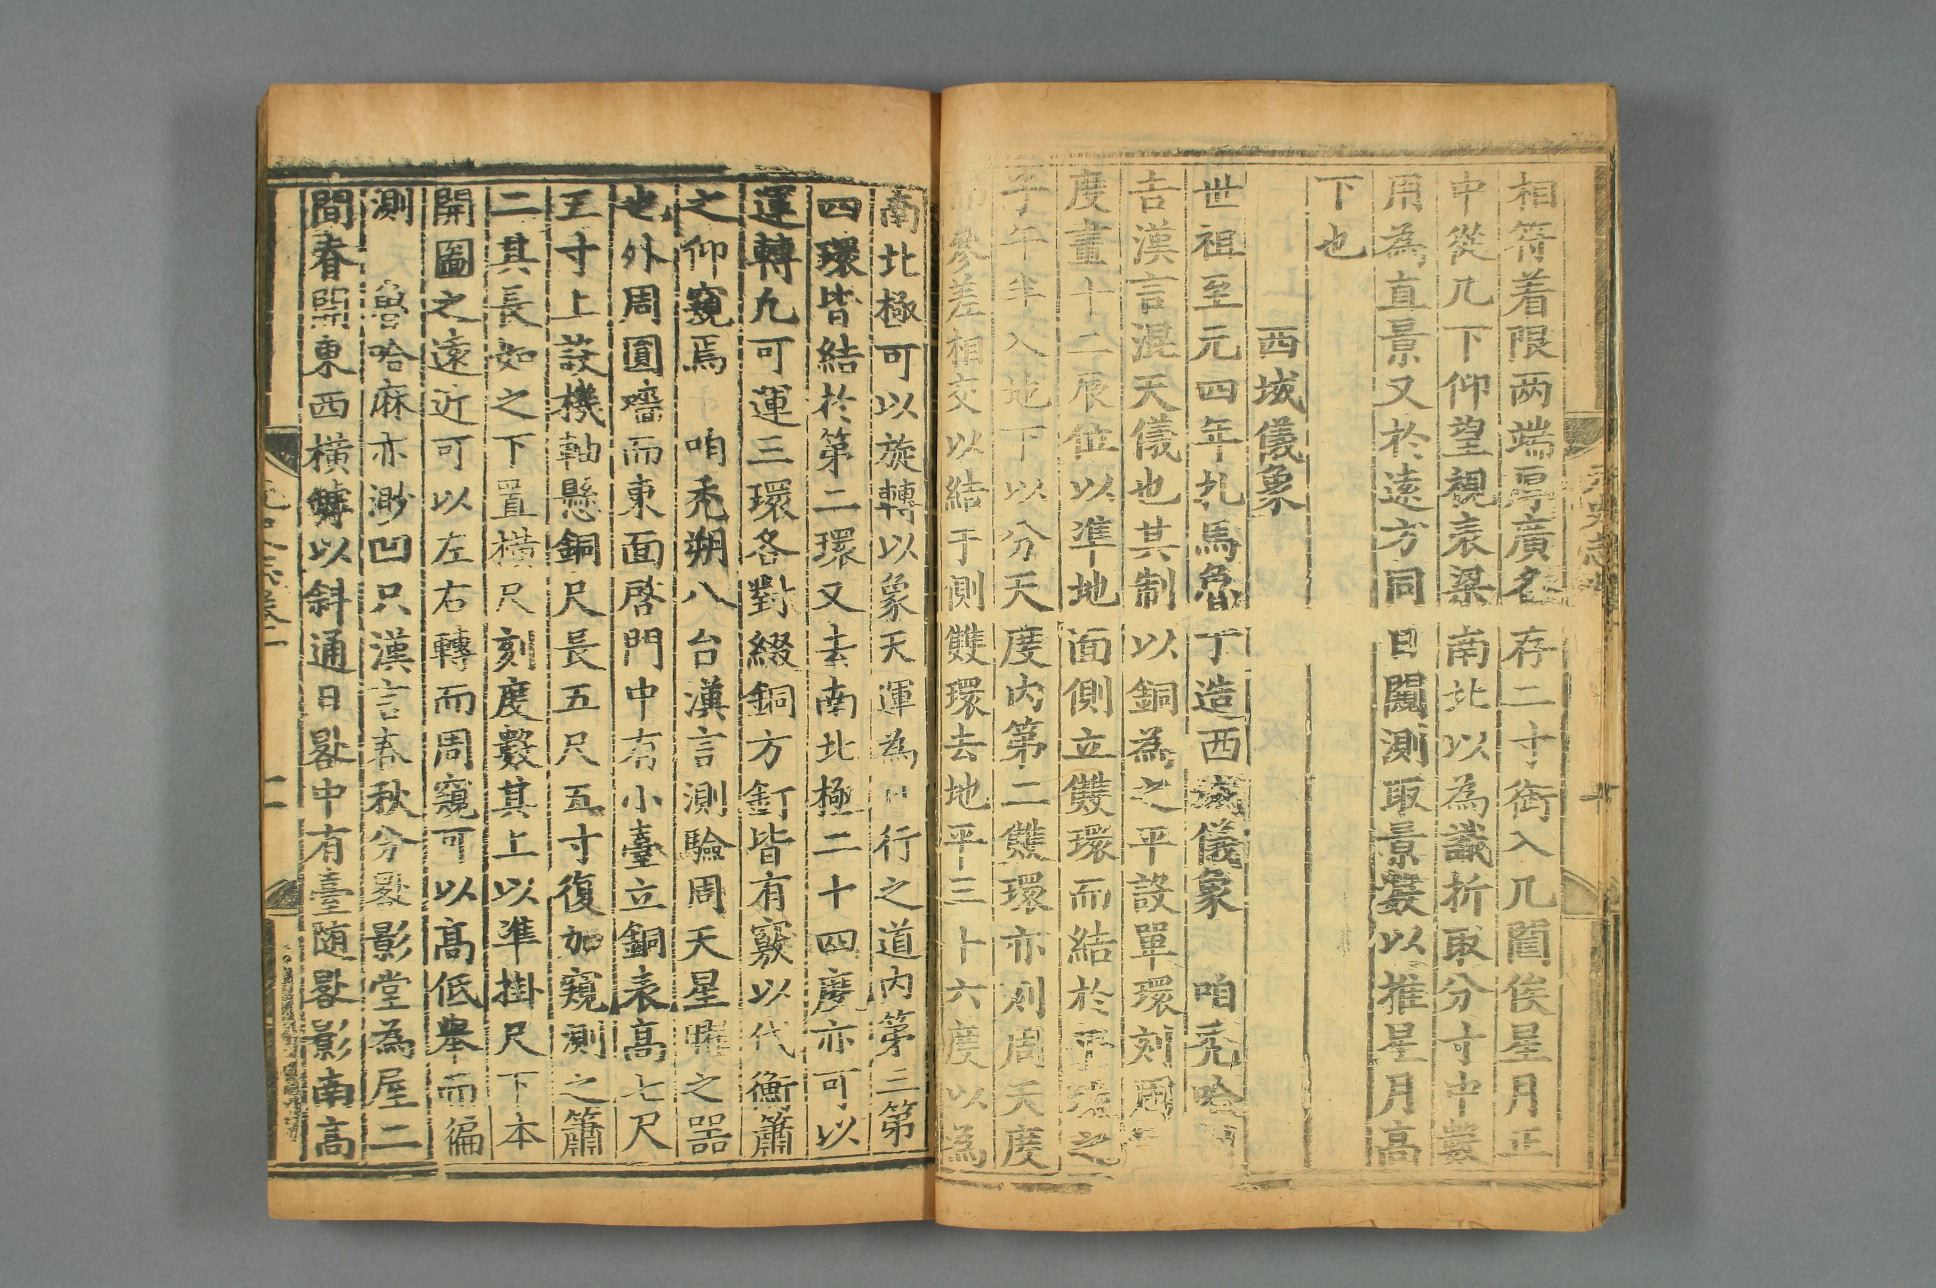 相符着限两端厚廣各存二寸銜入几闊俟星月正
中從几下仰望視表梁南北以為識折取分寸中數
用為直景又於遠方同日闚測取景數以推星月高
下也
西域儀象
世祖至元四年扎馬魯丁造西域儀象 咱禿哈
吉漢言混天儀也其制以銅為之平設單環刻周
度畫十二辰位以準地面側立雙環而結於平環之
子午半入地下以分天度内第二雙環亦刻周天度
參差相交以結于側雙環去地平三十六度以為
南北極可以旋轉以象天運為日行之道内第三第
四環皆結於第二環又去南北極二十四度亦可以
運轉凡可運三環各對綴銅方釘皆有竅以代衡簫
之仰窺焉 咱禿朔八台漢言測驗周天星曜之器
也外周圓墻而東面啓門中有小臺立銅表高七尺
五寸上設機軸懸銅尺長五尺五寸復加窺測之簫
二其長如之下置橫尺刻度數其上以準掛尺下本
開圖之遠近可以左右轉而周窺可以高低舉而徧
測 魯哈麻亦渺凹只漢言春秋分晷影堂為屋二
間春開東西橫罅以斜通日晷中有臺随晷影南高
元史志卷二
二